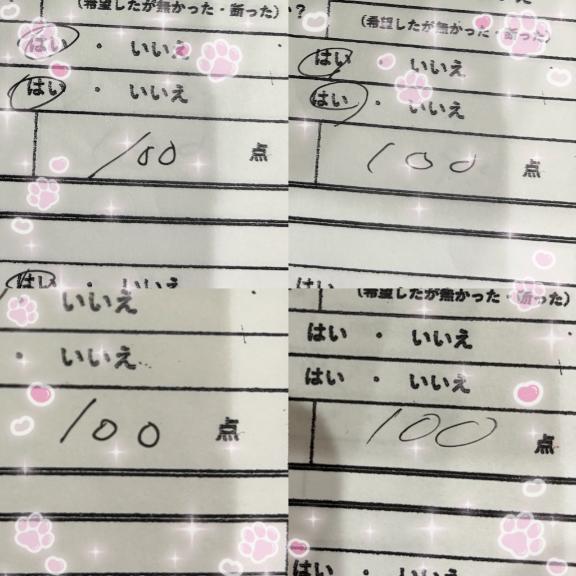 (希望したが無かった・断った)
はい ・ いいえ
はい ・ いいえ
100 点
はい ・ いいえ
?
(希望したが無かった・断った)
はい ・ いいえ
はい ・ いいえ
100 点
いいえ
・ いいえ
100 点
はい (希望したが無かった・断った)
はい ・ いいえ
はい ・ いいえ
100 点
はい ・ いいえ